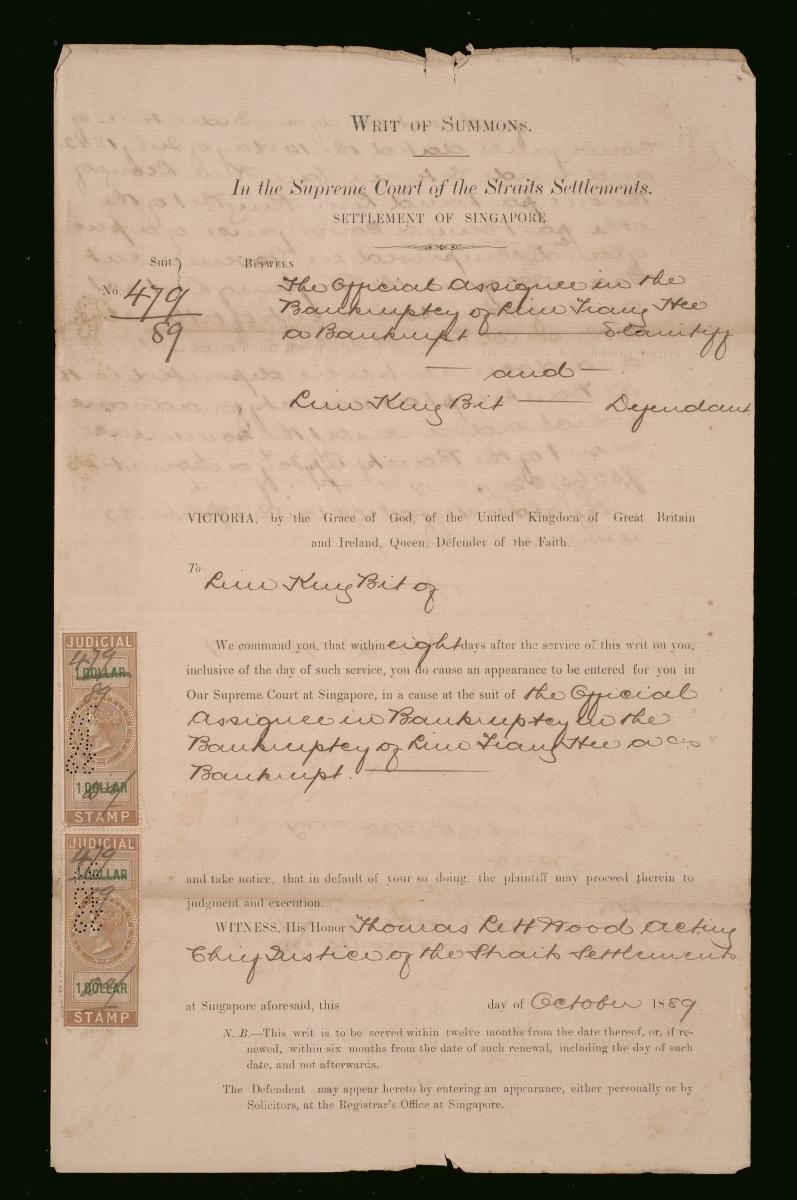 WRIT OF SUMMONS.
In the Supreme Court of the Straits Settlements.
SETTLEMENT OF SINGAPORE.
Suit
No 479
89
BETWEEN
The Official Assignee in the
Bankruptcy of Lim Tiang Hee
a Bankrupt Plaintiff
and
Lim King Bit Defendant
VICTORIA, by the Grace of God, of the United Kingdom of Great Britain
and Ireland, Queen, Defender of the Faith.
To Lim King Bit of
We command you, that within eight days after the service of this writ on you,
inclusive of the day of such service, you do cause an appearance to be entered for you in
Our Supreme Court at Singapore, in a cause at the suit of the Official
Assignee in Bankruptcy in the
Bankruptcy of Lim Tiang Hee a
Bankrupt.
and take notice, that in default of your so doing, the plaintiff may proceed therein to
judgment and execution.
WITNESS, His Honor Thomas Wood Acting
Chief Justice of the Straits Settlements
at Singapore aforesaid, this day of October 1889
N. B.—This writ is to be served within twelve months from the date thereof, or, if re-
newed, within six months from the date of such renewal, including the day of such
date, and not afterwards.
The Defendent may appear hereto by entering an appearance, either personally or by
Solicitors, at the Registrar's Office at Singapore.
JUDICIAL
479
1 DOLLAR
89
1 DOLLAR
STAMP
JUDICIAL
479
1 DOLLAR
89
1 DOLLAR
STAMP